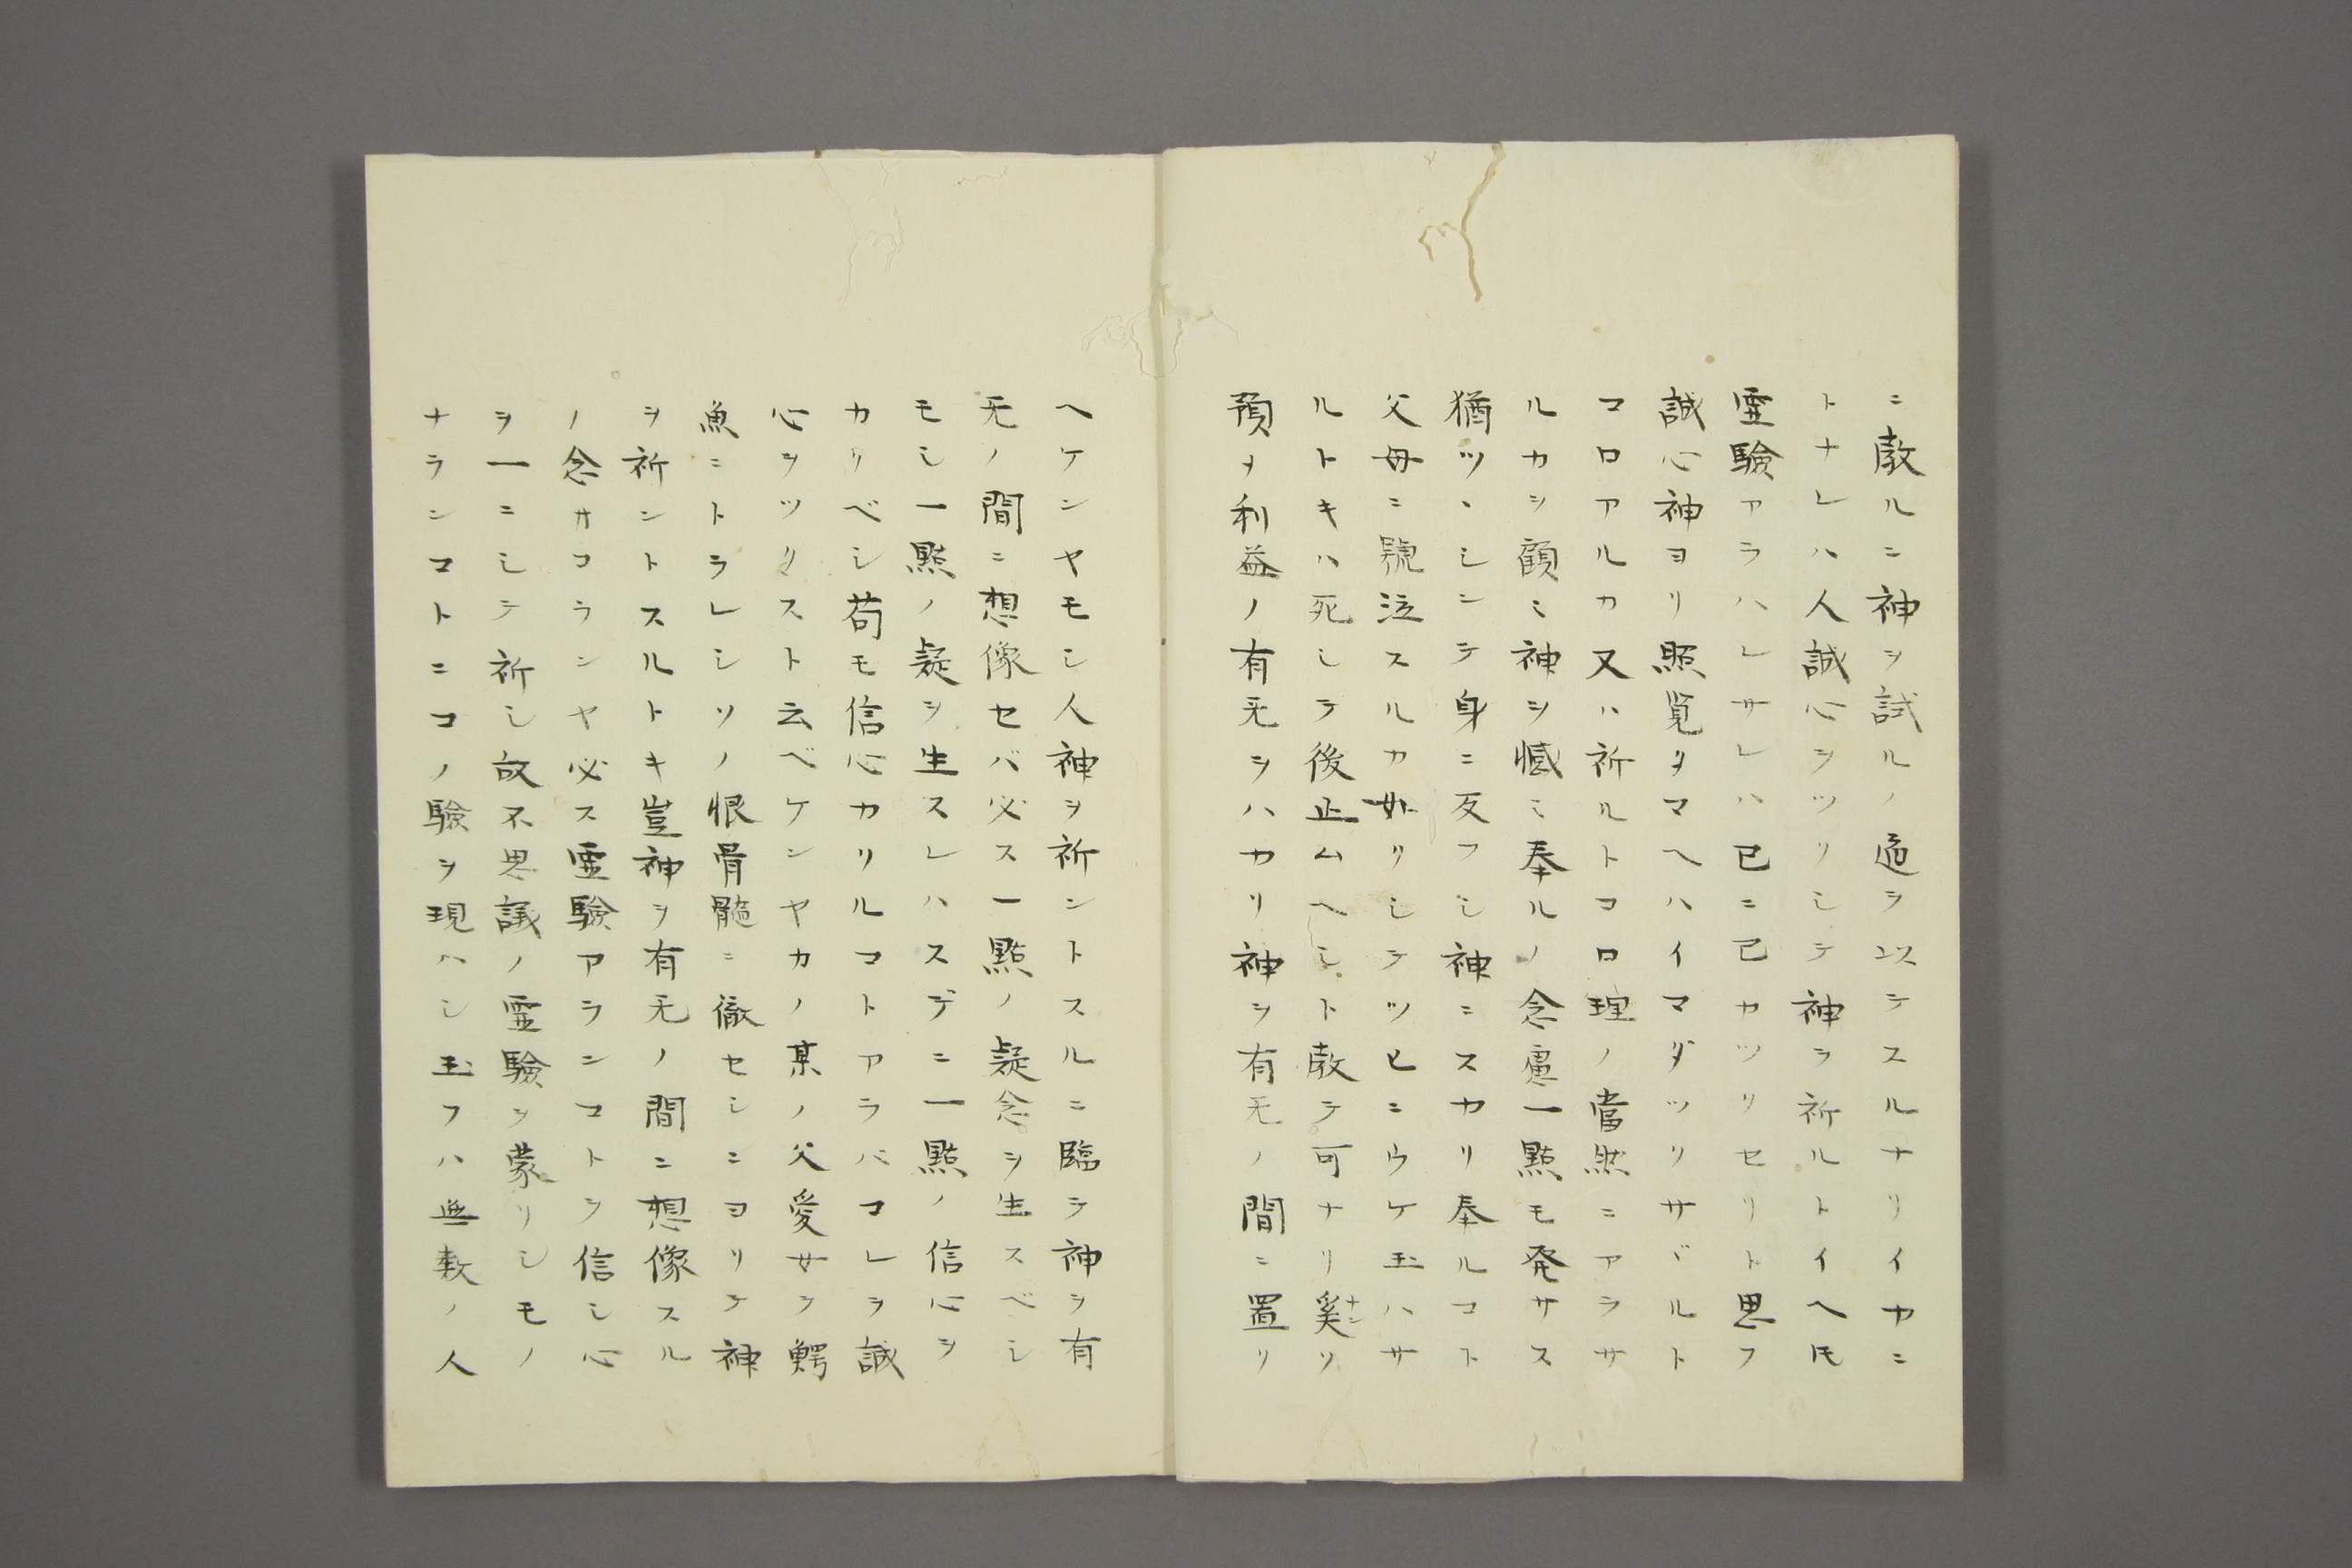 ニ敎ルニ神ヲ試ルノ道ヲ以テスルナリイカニ
トナレハ人誠心ヲツクシテ神ヲ祈ルトイヘ𪜈
霊驗アラハレサレハ已ニ己カツクセリト思フ
誠心神ヨリ照覧タマヘハイマダツクサヾルト
コロアルカ又ハ祈ルトコロ理ノ當然ニアラサ
ルカヲ顧ミ神ヲ憾ミ奉ルノ念慮一點モ発サス
猶ツヽシンテ身ニ反フシ神ニスカリ奉ルコト
父母ニ號泣スルカ如クシテツヒニウケ玉ハサ
ルトキハ死シテ後止ムヘシト敎テ可ナリ奚ナンソ
預メ利益ノ有无ヲハカリ神ヲ有无ノ間ニ置ク
ヘケンヤモシ人神ヲ祈ントスルニ臨テ神ヲ有
无ノ間ニ想像セバ必ス一點ノ疑念ヲ生スベシ
モシ一點ノ疑ヲ生スレハスデニ一點ノ信心ヲ
カクベシ苟モ信心カクルコトアラバコレヲ誠
心ヲツクスト云ベケンヤカノ某ノ父愛女ヲ鰐
魚ニトラレシソノ恨骨髄ニ徹セシニヨリテ神
ヲ祈ントスルトキ豈神ヲ有无ノ間ニ想像スル
ノ念サコランヤ必ス霊驗アランコトヲ信シ心
ヲ一ニシテ祈シ故不思議ノ霊驗ヲ蒙リシモノ
ナランコトニコノ驗ヲ現ハシ玉フハ無数ノ人